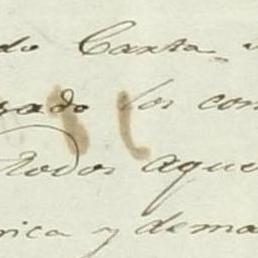 do Carta
rado los con
Todos aque
rica y dema